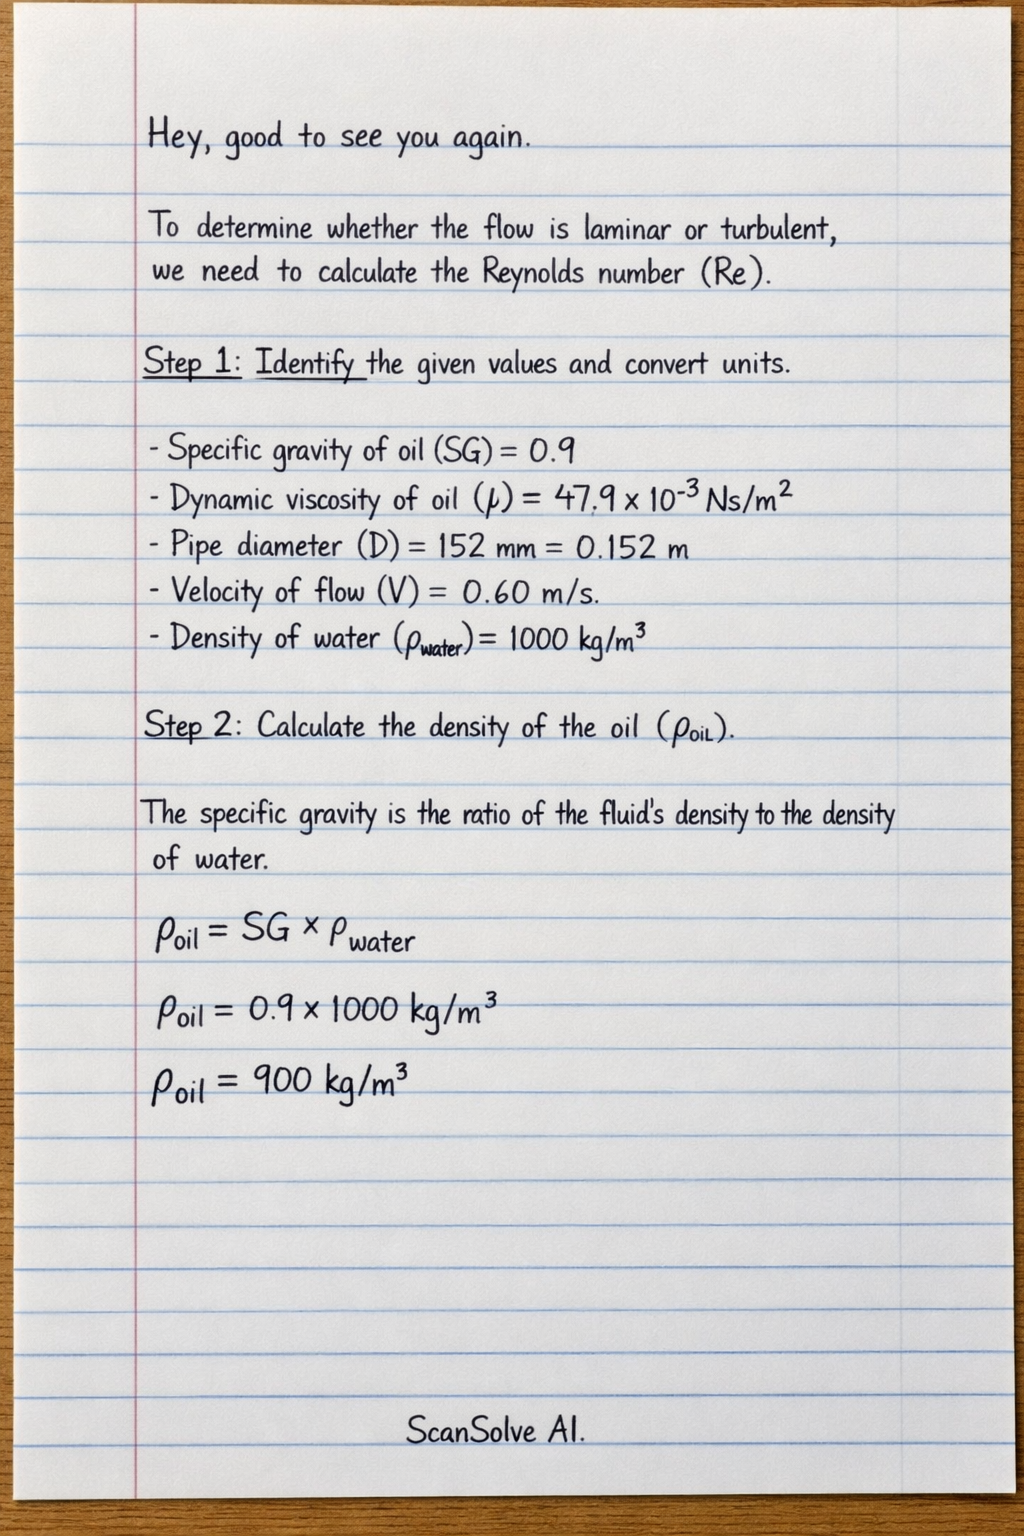 Hey, good to see you again.
To determine whether the flow is laminar or turbulent,
we need to calculate the Reynolds number (Re).
Step 1: Identify the given values and convert units.
- Specific gravity of oil (SG) = 0.9
- Dynamic viscosity of oil (μ) = 47.9 x 10⁻³ Ns/m²
- Pipe diameter (D) = 152 mm = 0.152 m
- Velocity of flow (V) = 0.60 m/s.
- Density of water (ρwater) = 1000 kg/m³
Step 2: Calculate the density of the oil (ρoiL).
The specific gravity is the ratio of the fluid's density to the density
of water.
ρoil = SG × ρwater
ρoil = 0.9 × 1000 kg/m³
ρoil = 900 kg/m³
ScanSolve AI.